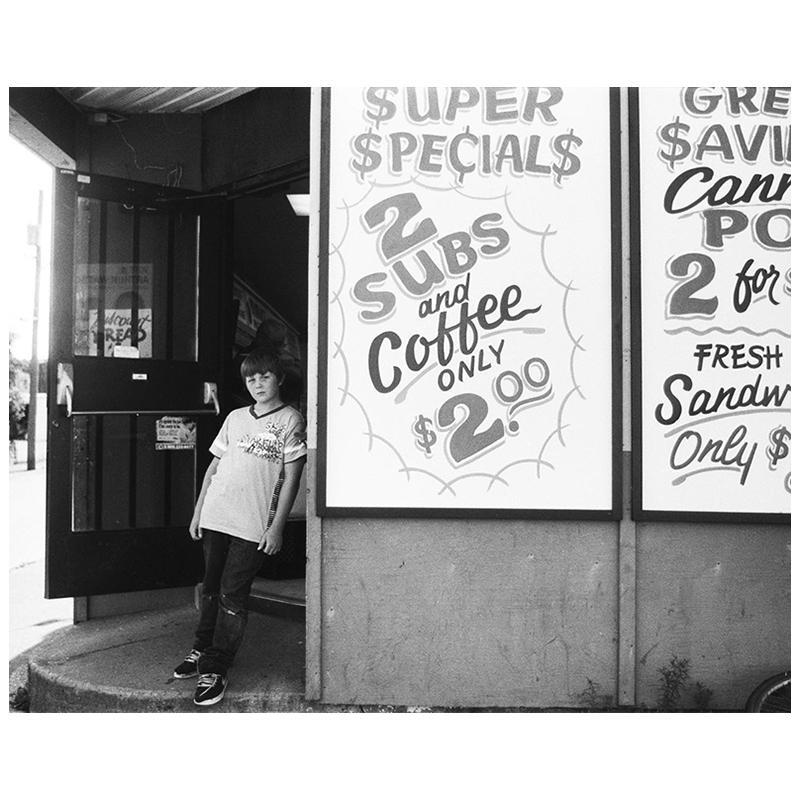 $UPER
$PE¢IAL$
2
SUBS
and
Coffee
ONLY
$2.00
GRE
$AVI
Cann
PO
2 for $
FRESH
Sandw
Only $
BREAD